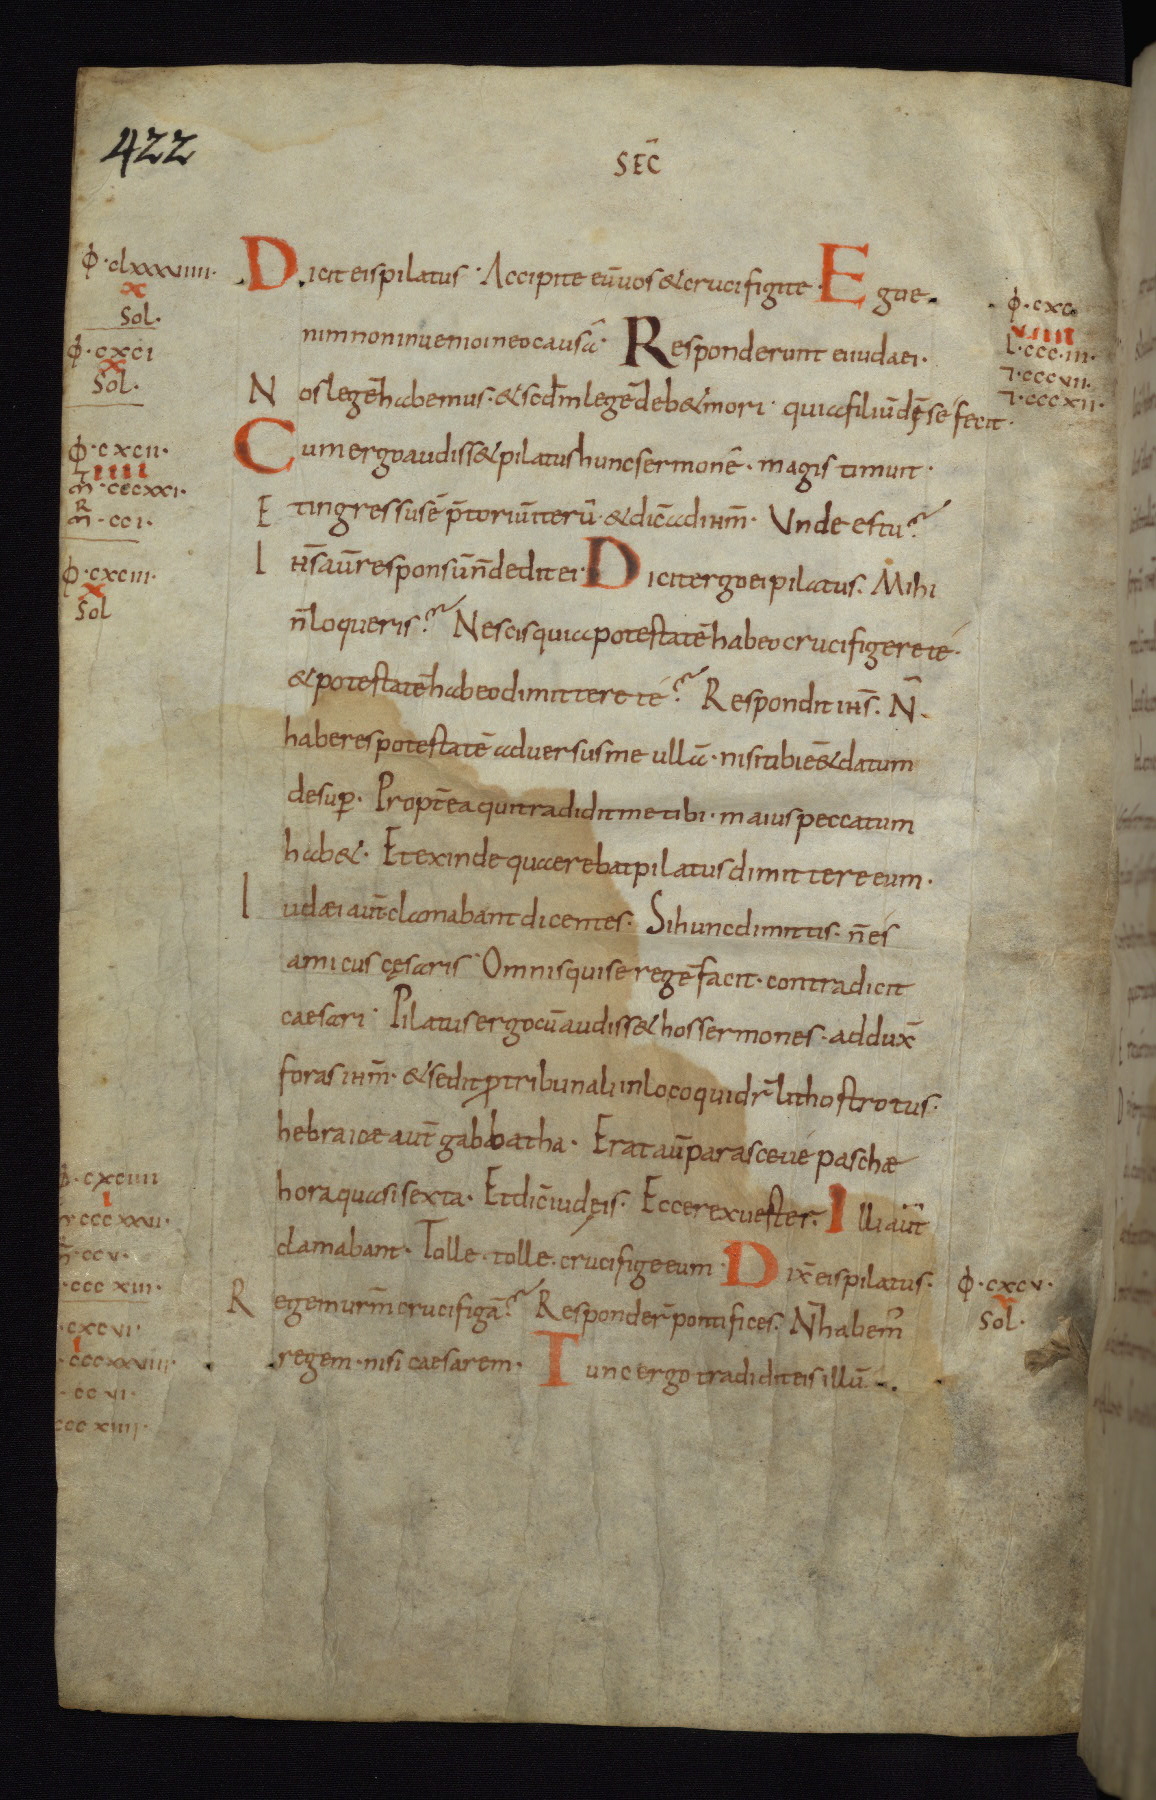 422
SEC̄
φ·clxxxviiii·
x
Sol·
φ·cxci
x
Sol·
φ·cxcii·
iiii
m̄·cccxxi·
m̄R·cci·
φ·cxciii·
x
Sol
Dicit eis pilatus· Accipite eū uos & crucifigite· Ego e
nim non inuenio in eo causā· Responderunt ei iudaei·
Nos legē habemus· & scd̄m legē deb& mori· quia filiū dī sē fecit·
Cum ergo audiss& pilatus hunc sermonē· magis timuit·
Et ingressus ē p̄toriū iterū· & dic̄ ad ihm̄· Vnde es tu?
Ihs̄ aū responsū n̄ dedit ei· Dicit ergo ei pilatus· Mihi
n̄ loqueris? Nescis quia potestatē habeo crucifigere té·
& potestatē habeo dimittere té? Respondit ihs̄· N̄
haberes potestatē aduersus me ullā· nisi tibi ēē& datum
desup̄· Propt̄ea qui tradidit me tibi· maius peccatum
hab&· Et exinde quaerebat pilatus dimittere eum·
Iudæi aut̄ clamabant dicentes· Si hunc dimittis· n̄ és
amicus cęsaris· Omnis qui se regē facit· contradicit
caesari· Pilatus ergo cū audiss& hos sermones· addux̄
foras ihm̄· & sedit ꝓ tribunali in loco qui dr̄ lithostrotus·
hebraice aut̄ gabbatha· Erat aū parasceue paschæ
hora quasi sexta· Et dic̄ iudęis· Ecce rex uester· Illi aūt
clamabant· Tolle· tolle· crucifige eum· Dix̄ eis pilatus·
Regem urm̄ crucifigā? Responder̄ pontifices· N̄ habem᾽
regem· nisi caesarem· Tunc ergo tradidit eis illū·
φ·cxc
iiii
L·ccc·iii·
⁊·cccvii·
⁊·cccxii·
φ·cxciiii
i
cccxxvi·
m̄R·ccv·
·cccxiii·
·cxcvi·
i
·cccxxviii·
·ccvi·
cccxiiii·
φ·cxcv·
x
Sol·